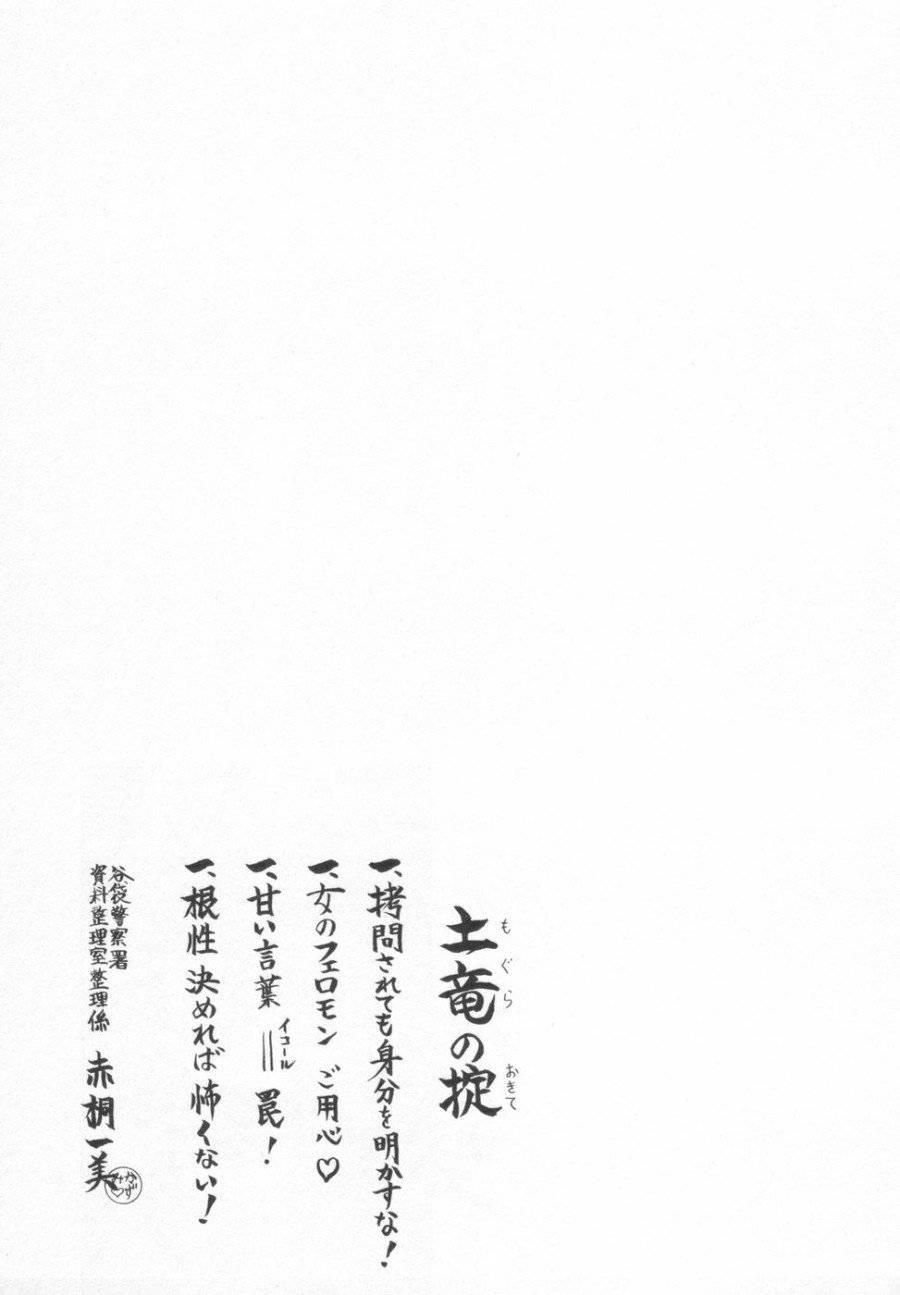 土竜の掟
もぐら
おきて
一、拷問されても身分を明かすな！
一、女のフェロモンご用心♡
一、甘い言葉＝罠！
イコール
一、根性決めれば怖くない！
谷袋警察署
資料整理室整理係
赤桐一美